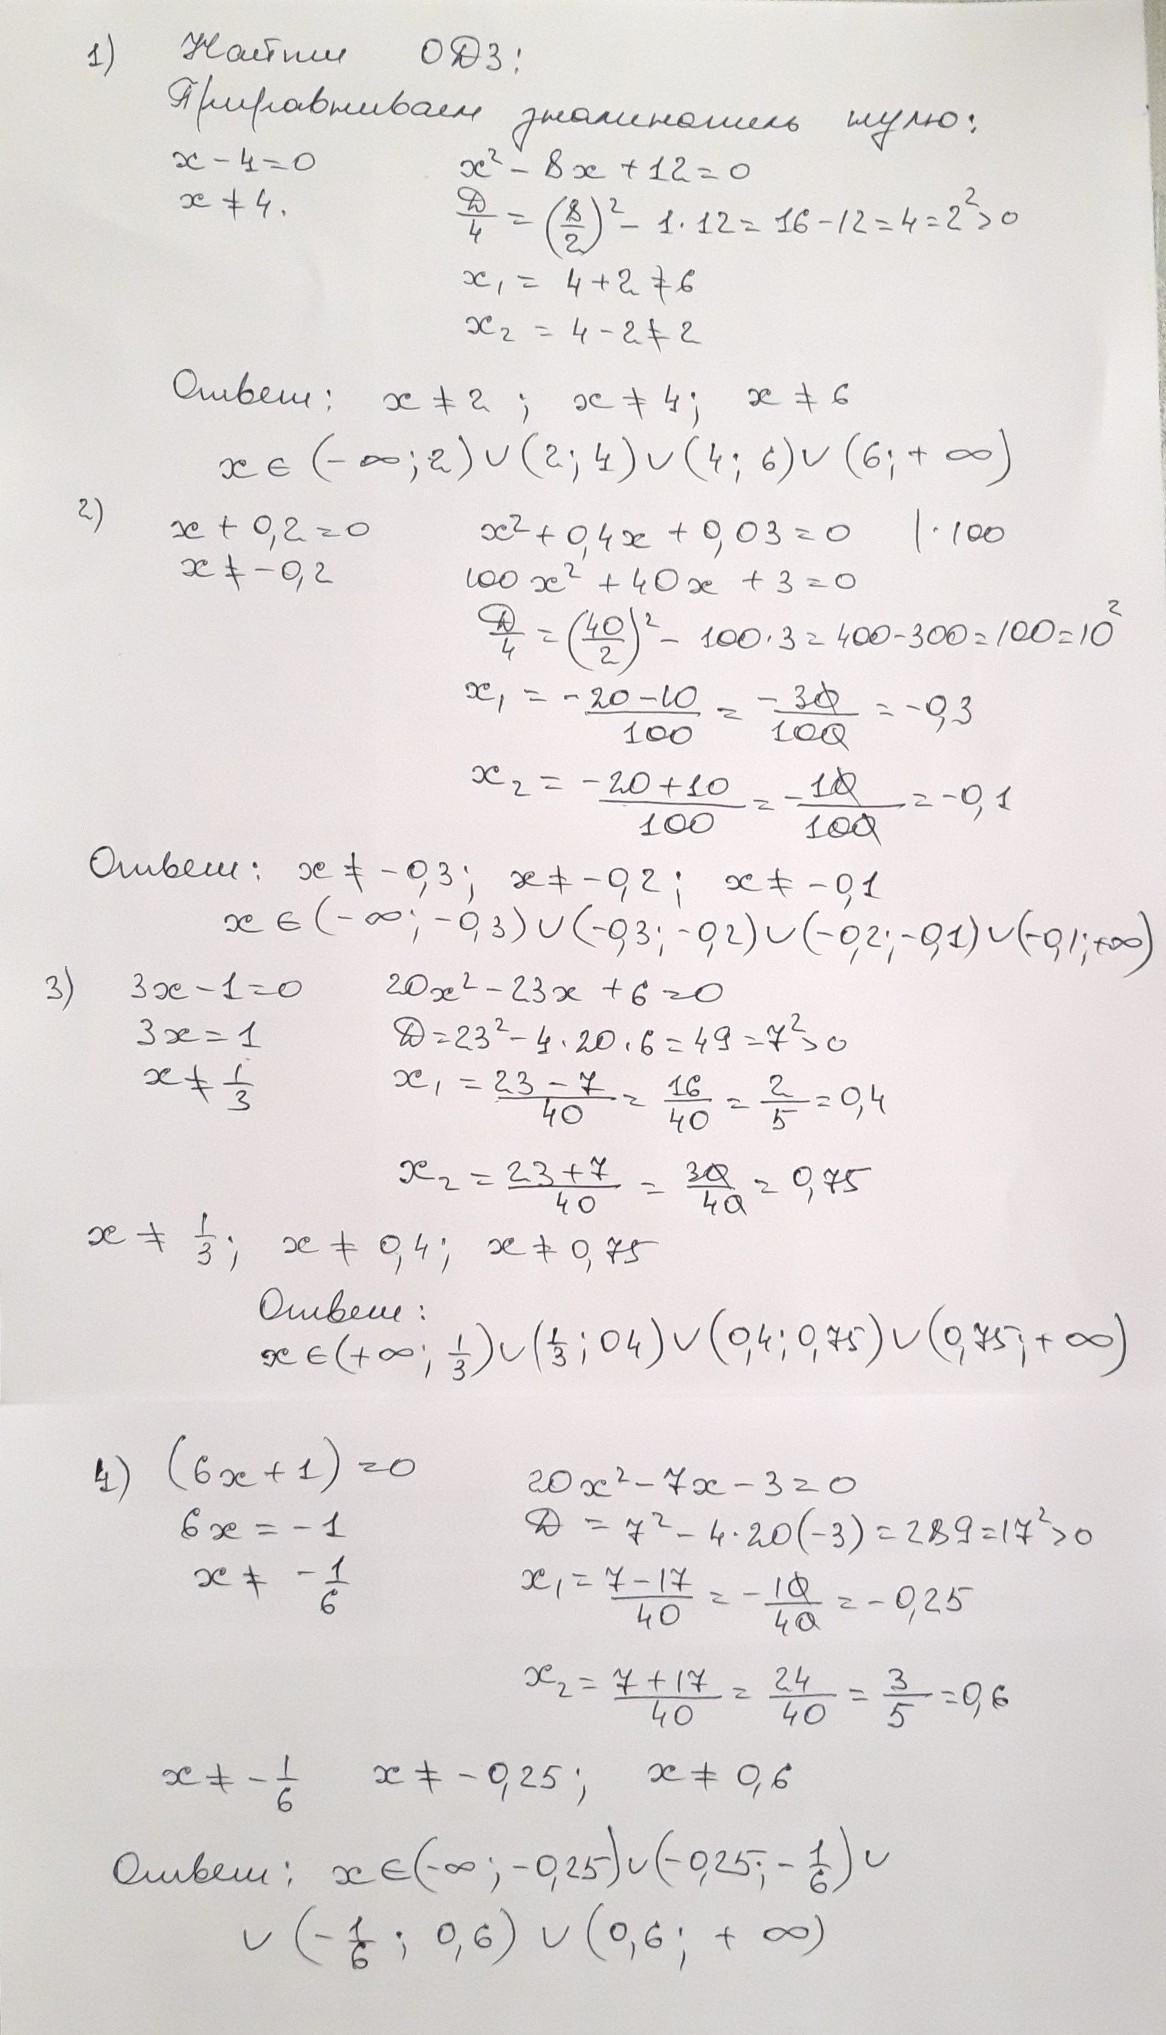 1) Найти ОДЗ:
Приравниваем знаменатель нулю:
x - 4 = 0 x² - 8x + 12 = 0
x ≠ 4. D/4 = (8/2)² - 1·12 = 16 - 12 = 4 = 2² > 0
x₁ = 4 + 2 ≠ 6
x₂ = 4 - 2 ≠ 2
Ответ: x ≠ 2 ; x ≠ 4; x ≠ 6
x ∈ (-∞; 2) ∪ (2; 4) ∪ (4; 6) ∪ (6; +∞)
2) x + 0,2 = 0 x² + 0,4x + 0,03 = 0 |·100
x ≠ -0,2 100x² + 40x + 3 = 0
D/4 = (40/2)² - 100·3 = 400 - 300 = 100 = 10²
x₁ = (-20 - 10)/100 = -30/100 = -0,3
x₂ = (-20 + 10)/100 = -10/100 = -0,1
Ответ: x ≠ -0,3; x ≠ -0,2; x ≠ -0,1
x ∈ (-∞; -0,3) ∪ (-0,3; -0,2) ∪ (-0,2; -0,1) ∪ (-0,1; +∞)
3) 3x - 1 = 0 20x² - 23x + 6 = 0
3x = 1 D = 23² - 4·20·6 = 49 = 7² > 0
x ≠ 1/3 x₁ = (23 - 7)/40 = 16/40 = 2/5 = 0,4
x₂ = (23 + 7)/40 = 30/40 = 0,75
x ≠ 1/3; x ≠ 0,4; x ≠ 0,75
Ответ:
x ∈ (+∞; 1/3) ∪ (1/3; 04) ∪ (0,4; 0,75) ∪ (0,75; +∞)
4) (6x + 1) = 0 20x² - 7x - 3 = 0
6x = -1 D = 7² - 4·20(-3) = 289 = 17² > 0
x ≠ -1/6 x₁ = (7 - 17)/40 = -10/40 = -0,25
x₂ = (7 + 17)/40 = 24/40 = 3/5 = 0,6
x ≠ -1/6 x ≠ -0,25; x ≠ 0,6
Ответ: x ∈ (-∞; -0,25) ∪ (-0,25; -1/6) ∪
∪ (-1/6; 0,6) ∪ (0,6; +∞)